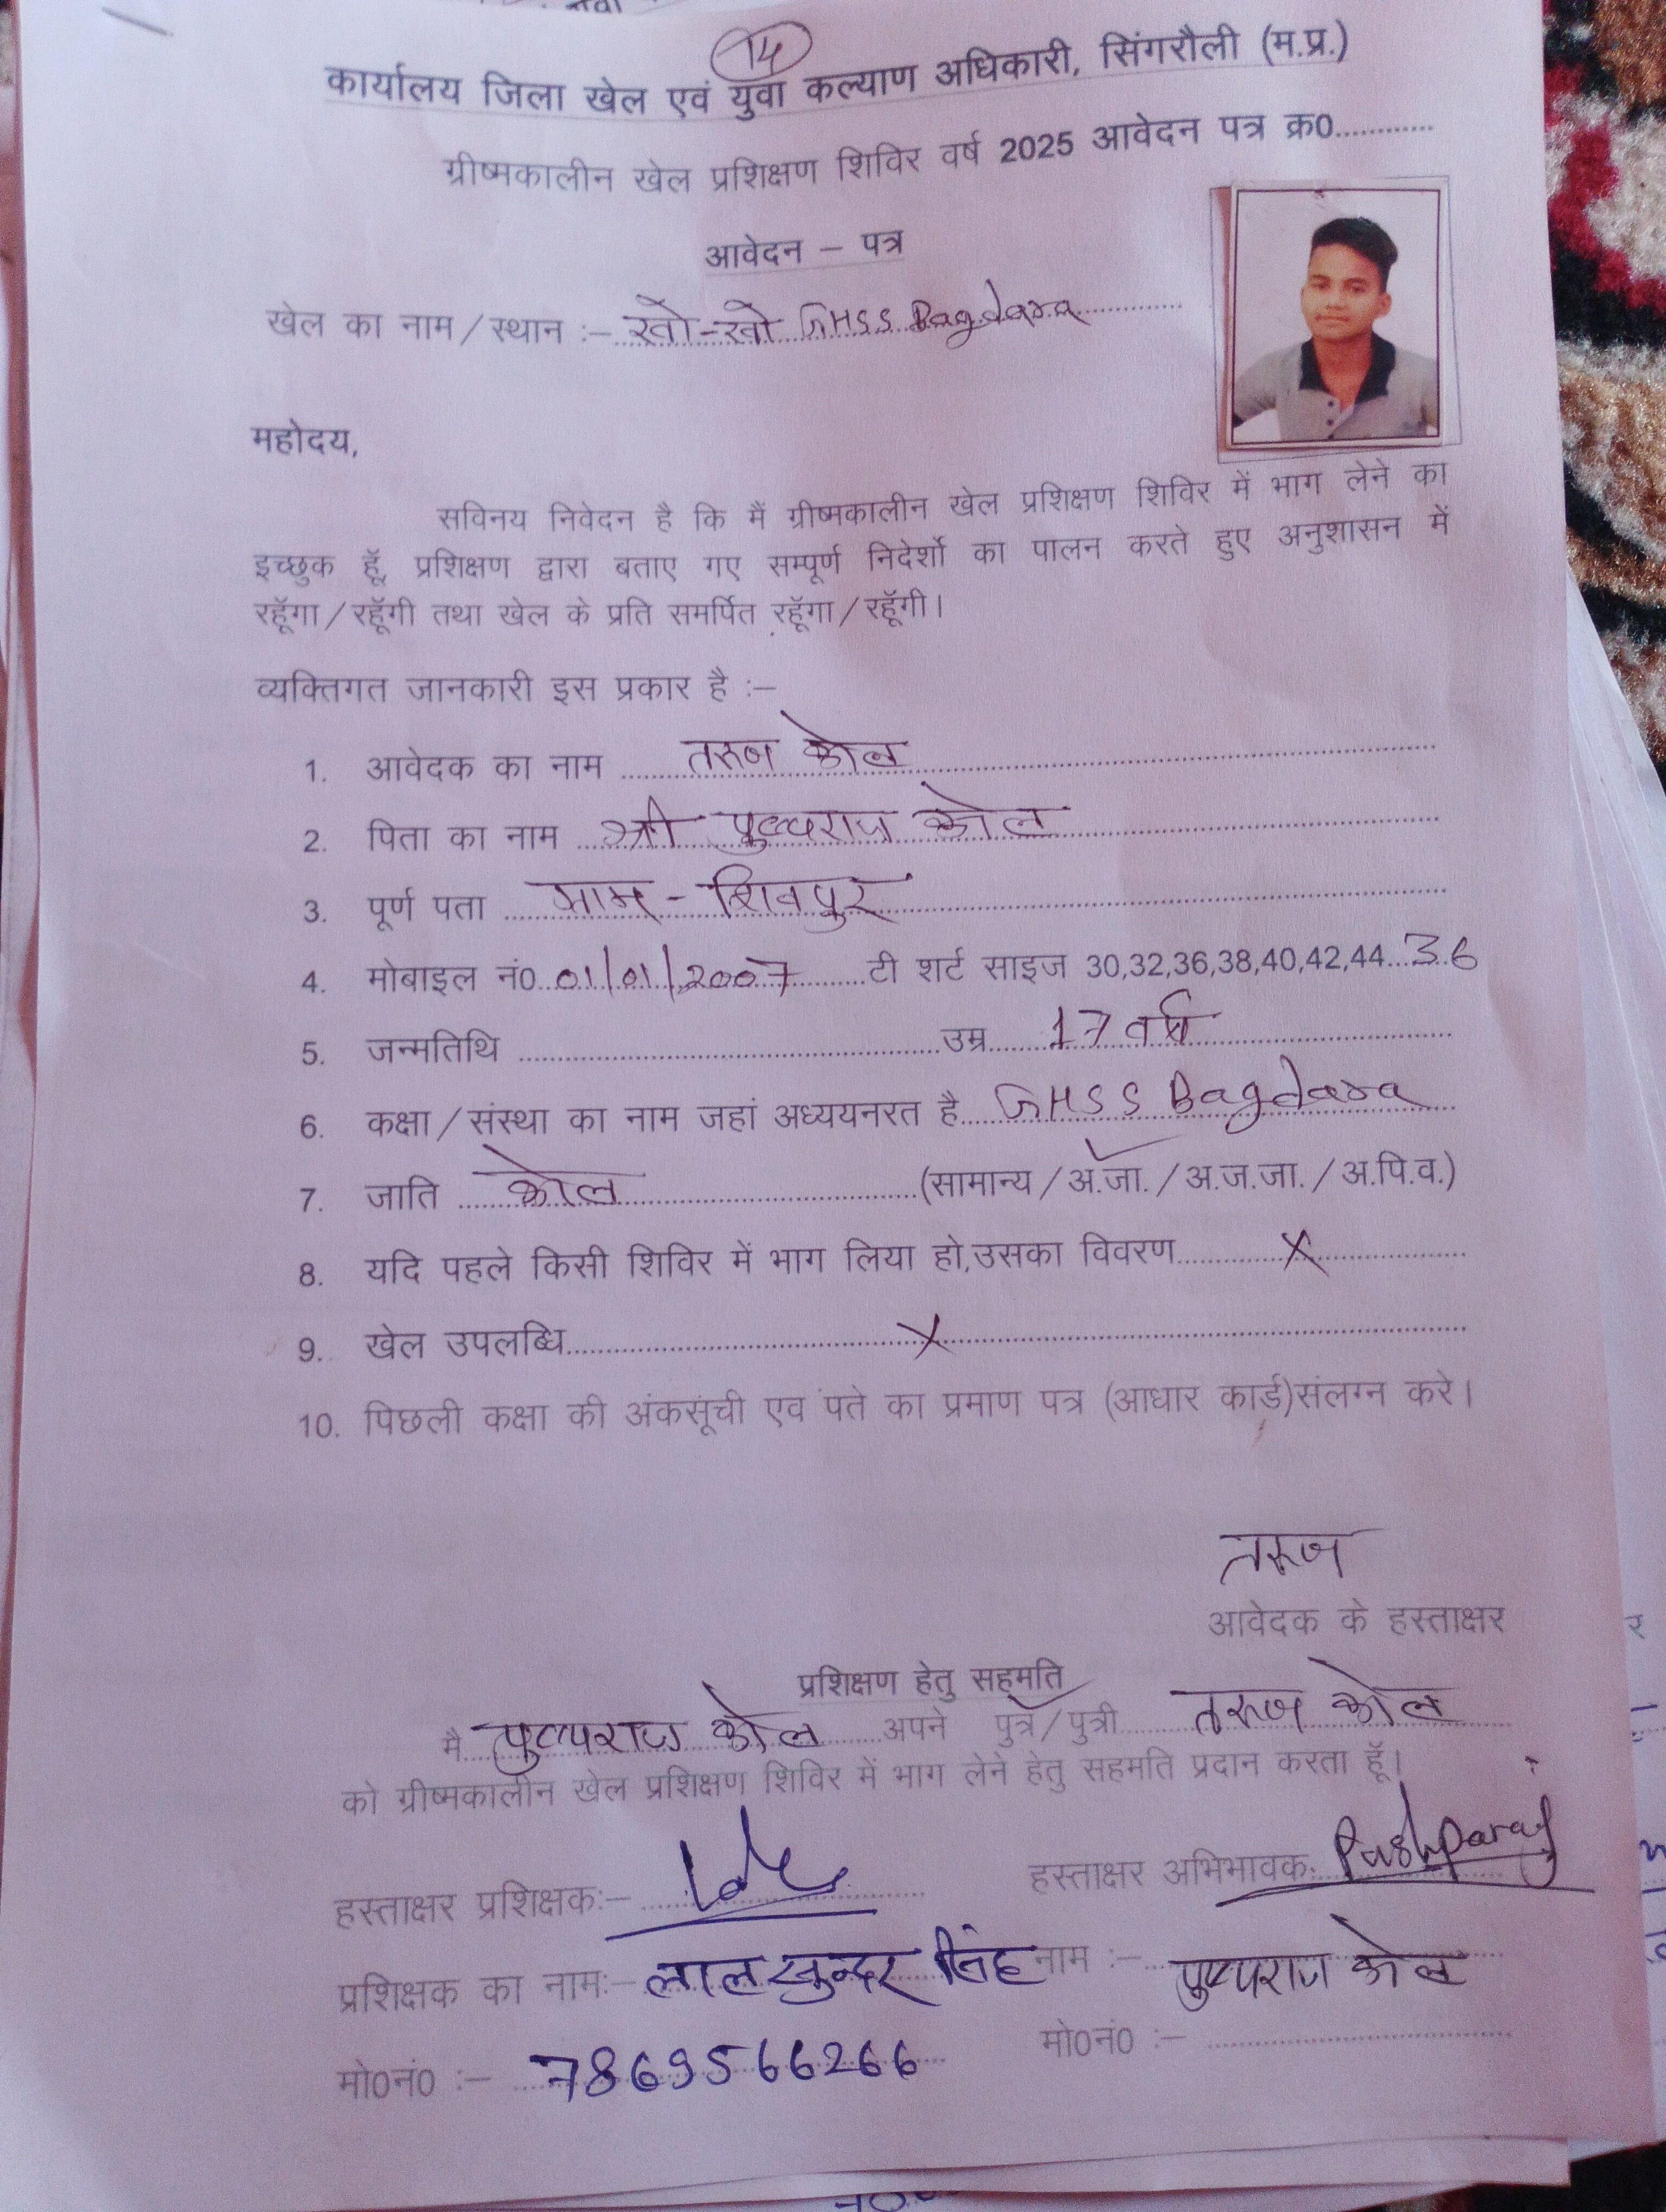 14
कार्यालय जिला खेल एवं युवा कल्याण अधिकारी, सिंगरौली (म.प्र.)
ग्रीष्मकालीन खेल प्रशिक्षण शिविर वर्ष 2025 आवेदन पत्र क्र0............
आवेदन – पत्र
खेल का नाम/स्थान :– खो-खो GHSS Bagdara
महोदय,
सविनय निवेदन है कि मैं ग्रीष्मकालीन खेल प्रशिक्षण शिविर में भाग लेने का
इच्छुक हूॅ, प्रशिक्षण द्वारा बताए गए सम्पूर्ण निदेर्शो का पालन करते हुए अनुशासन में
रहूॅगा/रहूॅगी तथा खेल के प्रति समर्पित रहूॅगा/रहूॅगी।
व्यक्तिगत जानकारी इस प्रकार है :–
1. आवेदक का नाम तरुण कोल
2. पिता का नाम श्री पुष्पराज कोल
3. पूर्ण पता ग्राम - शिवपुर
4. मोबाइल नं0 01/01/2007 टी शर्ट साइज 30,32,36,38,40,42,44...36
5. जन्मतिथि ........ उम्र 17 वर्ष
6. कक्षा/संस्था का नाम जहां अध्ययनरत है GHSS Bagdara
7. जाति कोल (सामान्य/अ.जा./अ.ज.जा./अ.पि.व.)
8. यदि पहले किसी शिविर में भाग लिया हो,उसका विवरण X
9. खेल उपलब्धि X
10. पिछली कक्षा की अंकसूंची एव पते का प्रमाण पत्र (आधार कार्ड)संलग्न करे।
तरुण
आवेदक के हस्ताक्षर
प्रशिक्षण हेतु सहमति
मै पुष्पराज कोल अपने पुत्र/पुत्री तरुण कोल
को ग्रीष्मकालीन खेल प्रशिक्षण शिविर में भाग लेने हेतु सहमति प्रदान करता हूॅ।
हस्ताक्षर प्रशिक्षक:– हस्ताक्षर अभिभावक: Pushparaj
प्रशिक्षक का नाम:– लाल सुन्दर सिंह नाम :– पुष्पराज कोल
मो0नं0 :– 7869566266 मो0नं0 :–